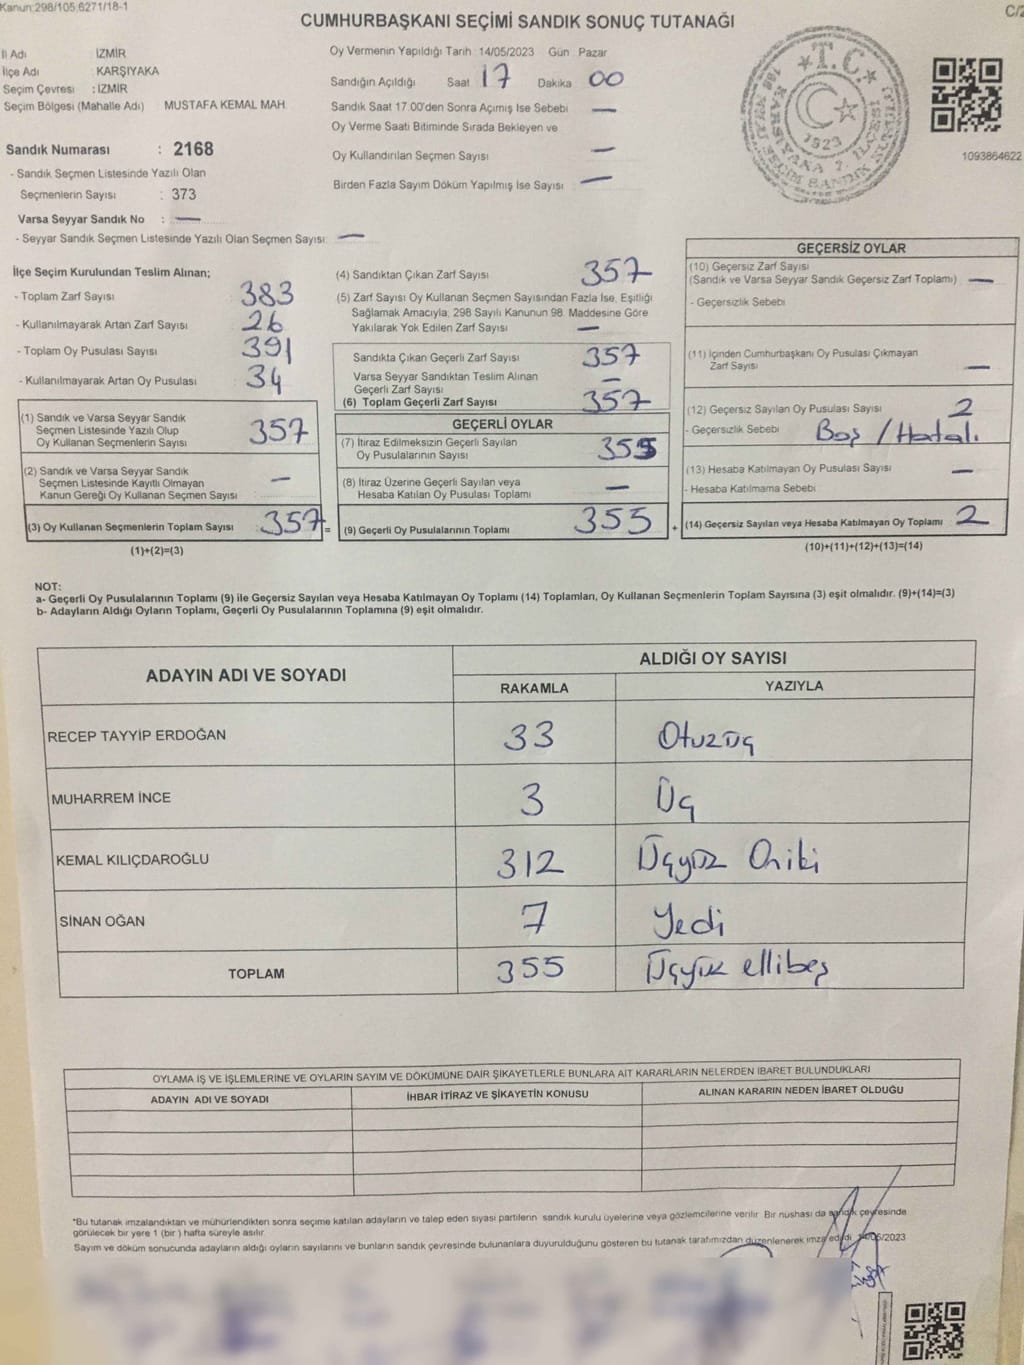 Kanun:298/105,6271/18-1
CUMHURBAŞKANI SEÇİMİ SANDIK SONUÇ TUTANAĞI
C/2
İl Adı İZMİR
İlçe Adı : KARŞIYAKA
Seçim Çevresi : İZMİR
Seçim Bölgesi (Mahalle Adı) MUSTAFA KEMAL MAH.
Sandık Numarası : 2168
- Sandık Seçmen Listesinde Yazılı Olan
Seçmenlerin Sayısı : 373
Varsa Seyyar Sandık No : —
- Seyyar Sandık Seçmen Listesinde Yazılı Olan Seçmen Sayısı: —
Oy Vermenin Yapıldığı Tarih 14/05/2023 Gün Pazar
Sandığın Açıldığı Saat 17 Dakika 00
Sandık Saat 17.00'den Sonra Açımış İse Sebebi —
Oy Verme Saati Bitiminde Sırada Bekleyen ve
Oy Kullandırılan Seçmen Sayısı —
Birden Fazla Sayım Döküm Yapılmış İse Sayısı : —
T.C.
1923
1093864622
İlçe Seçim Kurulundan Teslim Alınan;
- Toplam Zarf Sayısı 383
- Kullanılmayarak Artan Zarf Sayısı 26
- Toplam Oy Pusulası Sayısı 391
- Kullanılmayarak Artan Oy Pusulası 34
(1) Sandık ve Varsa Seyyar Sandık
Seçmen Listesinde Yazılı Olup
Oy Kullanan Seçmenlerin Sayısı 357
(2) Sandık ve Varsa Seyyar Sandık
Seçmen Listesinde Kayıtlı Olmayan
Kanun Gereği Oy Kullanan Seçmen Sayısı —
(3) Oy Kullanan Seçmenlerin Toplam Sayısı 357 =
(1)+(2)=(3)
(4) Sandıktan Çıkan Zarf Sayısı 357
(5) Zarf Sayısı Oy Kullanan Seçmen Sayısından Fazla İse, Eşitliği
Sağlamak Amacıyla, 298 Sayılı Kanunun 98. Maddesine Göre
Yakılarak Yok Edilen Zarf Sayısı —
Sandıkta Çıkan Geçerli Zarf Sayısı 357
Varsa Seyyar Sandıktan Teslim Alınan
Geçerli Zarf Sayısı —
(6) Toplam Geçerli Zarf Sayısı 357
GEÇERLİ OYLAR
(7) İtiraz Edilmeksizin Geçerli Sayılan
Oy Pusulalarının Sayısı 355
(8) İtiraz Üzerine Geçerli Sayılan veya
Hesaba Katılan Oy Pusulası Toplamı —
(9) Geçerli Oy Pusulalarının Toplamı 355 +
GEÇERSİZ OYLAR
(10) Geçersiz Zarf Sayısı
(Sandık ve Varsa Seyyar Sandık Geçersiz Zarf Toplamı) —
- Geçersizlik Sebebi
(11) İçinden Cumhurbaşkanı Oy Pusulası Çıkmayan
Zarf Sayısı —
(12) Geçersiz Sayılan Oy Pusulası Sayısı 2
- Geçersizlik Sebebi Boş / Hatalı
(13) Hesaba Katılmayan Oy Pusulası Sayısı —
- Hesaba Katılmama Sebebi
(14) Geçersiz Sayılan veya Hesaba Katılmayan Oy Toplamı 2
(10)+(11)+(12)+(13)=(14)
NOT:
a- Geçerli Oy Pusulalarının Toplamı (9) ile Geçersiz Sayılan veya Hesaba Katılmayan Oy Toplamı (14) Toplamları, Oy Kullanan Seçmenlerin Toplam Sayısına (3) eşit olmalıdır. (9)+(14)=(3)
b- Adayların Aldığı Oyların Toplamı, Geçerli Oy Pusulalarının Toplamına (9) eşit olmalıdır.
ADAYIN ADI VE SOYADI ALDIĞI OY SAYISI
RAKAMLA YAZIYLA
RECEP TAYYİP ERDOĞAN 33 Otuzüç
MUHARREM İNCE 3 Üç
KEMAL KILIÇDAROĞLU 312 Üçyüz Oniki
SİNAN OĞAN 7 Yedi
TOPLAM 355 Üçyüz ellibeş
OYLAMA İŞ VE İŞLEMLERİNE VE OYLARIN SAYIM VE DÖKÜMÜNE DAİR ŞİKAYETLERLE BUNLARA AİT KARARLARIN NELERDEN İBARET BULUNDUKLARI
ADAYIN ADI VE SOYADI İHBAR İTİRAZ VE ŞİKAYETİN KONUSU ALINAN KARARIN NEDEN İBARET OLDUĞU
*Bu tutanak imzalandıktan ve mühürlendikten sonra seçime katılan adayların ve talep eden siyasi partilerin sandık kurulu üyelerine veya gözlemcilerine verilir. Bir nüshası da sandık çevresinde
görülecek bir yere 1 (bir ) hafta süreyle asılır.
Sayım ve döküm sonucunda adayların aldığı oyların sayılarını ve bunların sandık çevresinde bulunanlara duyurulduğunu gösteren bu tutanak tarafımızdan düzenlenerek imza edildi. 14/05/2023